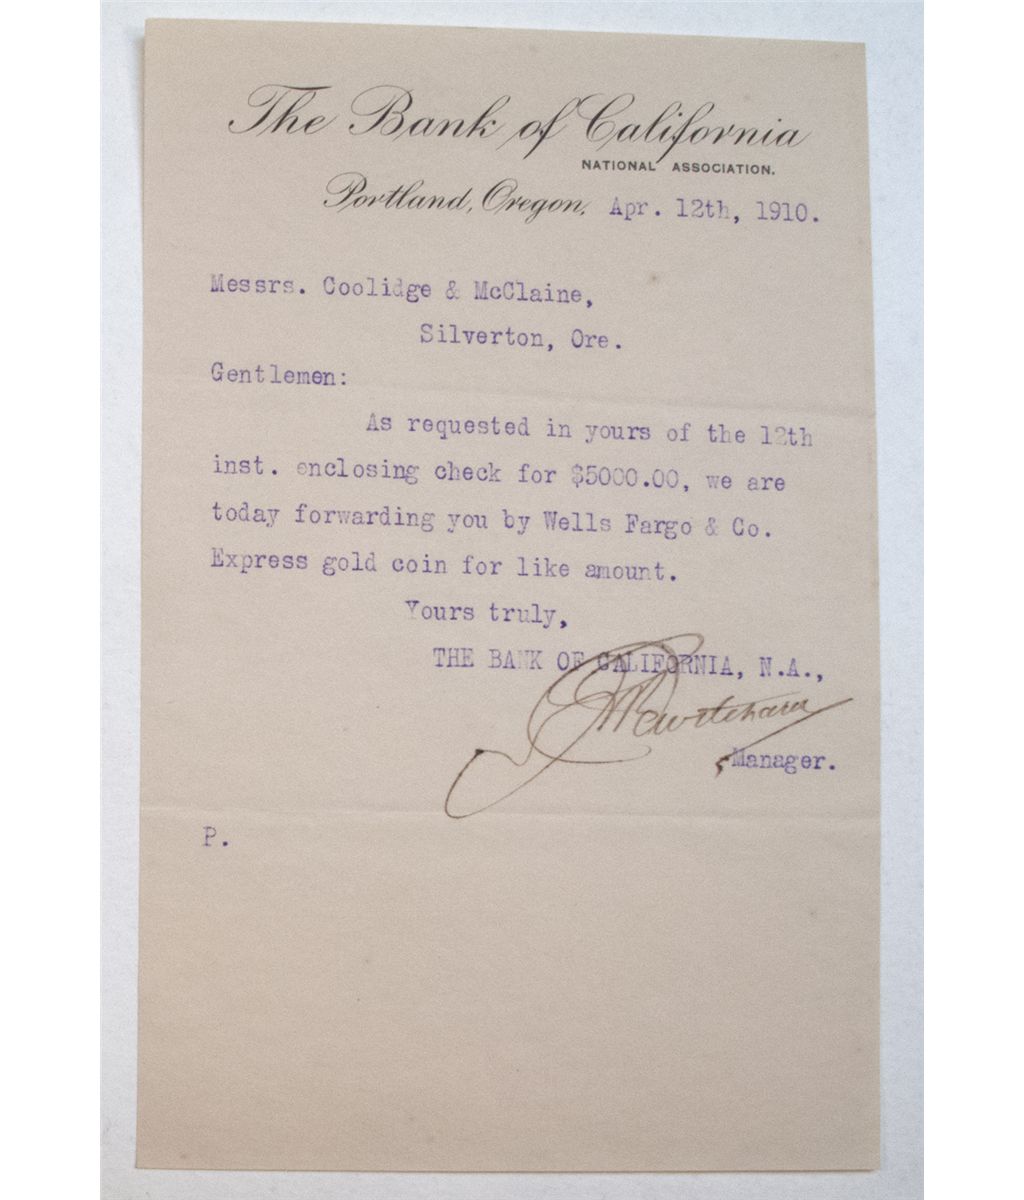 The Bank of California
NATIONAL ASSOCIATION.
Portland, Oregon, Apr. 12th, 1910.
Messrs. Coolidge & McClaine,
Silverton, Ore.
Gentlemen:
As requested in yours of the 12th
inst. enclosing check for $5000.00, we are
today forwarding you by Wells Fargo & Co.
Express gold coin for like amount.
Yours truly,
THE BANK OF CALIFORNIA, N.A.,
Manager.
P.